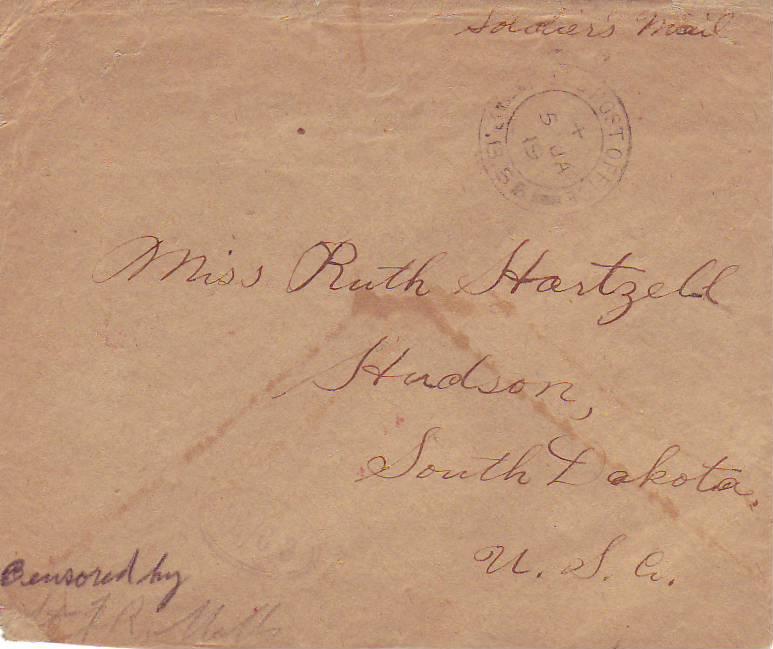 Soldier's Mail
POST OFFICE
5 JA
19
Miss Ruth Hartzell
Hudson,
South Dakota,
U. S. A.
Censored by